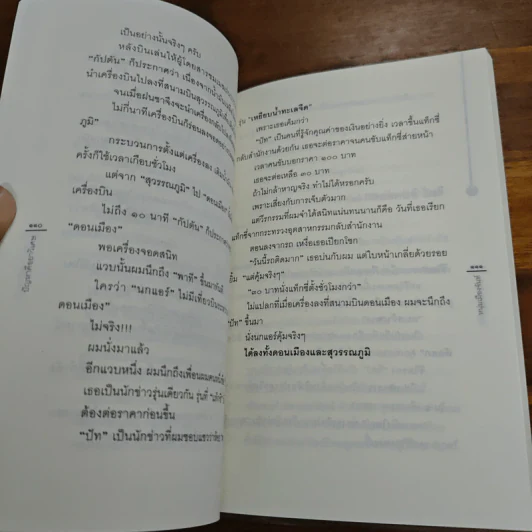 เป็นอย่างนั้นจริงๆ ครับ
หลังบินเล่นให้ผู้โดยสารชม
“กัปตัน” ก็ประกาศว่า เนื่องจาก
นำเครื่องบินไปลงที่สนามบินสุวรรณภูมิ
จนเมื่อฝนซาจึงจะนำเครื่อง
ไม่กี่นาทีเครื่องบินก็ร่อนลงจอด
ภูมิ”
กระบวนการตั้งแต่เครื่องลง
ครั้งก็ใช้เวลาเกือบชั่วโมง
แต่จาก “สุวรรณภูมิ” ไป “ดอนเมือง”
เครื่องบิน
ไม่ถึง ๑๐ นาที “กัปตัน” ก็ประกาศ
“ดอนเมือง”
พอเครื่องจอดสนิท
แวบนั้นผมนึกถึง “พาที” ขึ้นมาทันที
ใครว่า “นกแอร์” ไม่มีเที่ยวบิน
ดอนเมือง”
ไม่จริง!!!
ผมนั่งมาแล้ว
อีกแวบหนึ่ง ผมนึกถึงเพื่อน
เธอเป็นนักข่าวรุ่นเดียวกัน รุ่นที่
ต้องต่อราคาก่อนขึ้น
“ปัท” เป็นนักข่าวที่ผมชอบแซวว่า
๑๑๐
รุ่น “เหยียบน้ำทะเลจืด”
เพราะเธอเค็มกว่า
“ปัท” เป็นคนที่รู้จักคุณค่าของเงินอย่างยิ่ง เวลาขึ้นแท็กซี่
กลับสำนักงานด้วยกัน เธอจะต่อราคาจนคนขับแท็กซี่ส่ายหน้า
เวลาคนขับบอกราคา ๑๐๐ บาท
เธอจะต่อเหลือ ๓๐ บาท
ถ้าไม่กล้าหาญจริง ทำไม่ได้หรอกครับ
เพราะเสี่ยงกับการเจ็บตัวมาก
แต่วีรกรรมที่ผมจำได้สนิทแน่นทนนานก็คือ วันที่เธอเรียก
แท็กซี่จากกระทรวงอุตสาหกรรมกลับสำนักงาน
ตอนลงจากรถ เหงื่อเธอเปียกโชก
“วันนี้รถติดมาก” เธอบ่นกับผม แต่ใบหน้าเกลี่ยด้วยรอย
ยิ้ม “แต่คุ้มจริงๆ”
“๓๐ บาทนั่งแท็กซี่ตั้งชั่วโมงกว่า”
ไม่แปลกที่เมื่อเครื่องลงที่สนามบินดอนเมือง ผมจะนึกถึง
“ปัท” ขึ้นมา
นั่งนกแอร์คุ้มจริงๆ
ได้ลงทั้งดอนเมืองและสุวรรณภูมิ
๑๑๑
หนุ่มเมืองจันท์